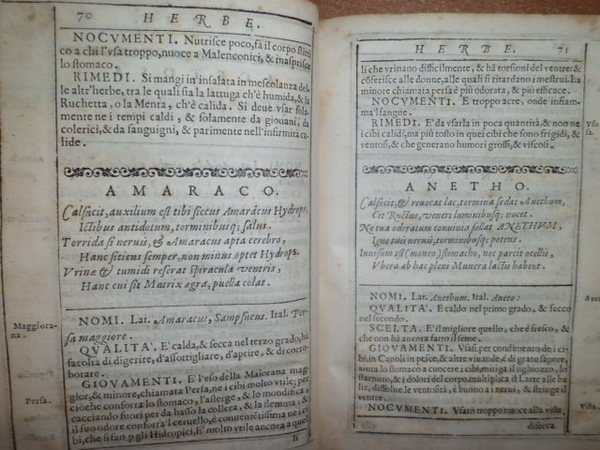 70 HERBE.
NOCVMENTI. Nutrisce poco, fà il corpo stiti
co a chi l'vsa troppo, nuoce a Malenconici, & inasprisce
lo stomaco.
RIMEDI. Si mangi in insalata in mescolanza del-
le altr'herbe, tra le quali sia la lattuga ch'è humida, & la
Ruchetta, o la Menta, ch'è calida. Si deue vsar sola-
mente ne i tempi caldi, & solamente da giouani, da
colerici, & da sanguigni, & parimente nell'infirmità ca
lide.
AMARACO.
Calfacit, auxilium est tibi siccus Amaracus Hydrops,
Ictibus antidotum, torminibusq; salus.
Torrida si neruis, & Amaracus apta cerebro,
Hanc sitiens semper, non minus optet Hydrops.
Vrinæ & tumidi referat spiracula ventris,
Hanc cui sit Matrix ægra, puella colat.
Maggiora-
na.
NOMI. Lat. Amaracus, Sampsucus. Ital. Per
sa maggiore.
QVALITA'. E' calda, & secca nel terzo grado, hà
facoltà di digerire, d'assottigliare, d'aprire, & di corro
borare.
Persa.
GIOVAMENTI. E' l'vso della Maiorana mag
gior, & minore, chiamata Persa, ne i cibi molto vtile; per
ciòche conforta lo stomaco, l'asterge, & lo mondifica
cacciando fuori per da basso la collera, & la flemma: &
il suo odore conforta'l ceruello, e contien
che, si fan p gli Hidropici, E' molto vtile ancora a quel
li
HERBE. 71
li che vrinano difficilmente, & hà torsioni del ventre: &
cõferisce alle donne, alle quali si ritardano i mestrui. la
minore chiamata persa è più odorata, & più efficace.
NOCVMENTI. E' troppo acre, onde infiam-
ma'l sangue.
RIMEDI. E' da vsarla in poca quantità, & non ne
i cibi calidi, ma più tosto in quei cibi che sono frigidi, &
ventosi, & che generano humori grossi, & viscosi.
ANETHO.
Calfacit, & reuocat lac, tormina sedat Anethum,
Cit Ructus, veneri luminibusq; nocet.
Ne tua odoratum conuiuia fallat ANETHVM,
Igne tuui neruis, torminibusq; potens.
Inuisum est (moneo) stomacho, nec parcit ocellis,
Vbera ab hac plena Munera lactis habent.
NOMI. Lat. Anethum. Ital. Aneto:
QVALITA'. E' caldo nel primo grado, & secco
nel secondo.
SCELTA. E' il migliore quello, che è fresco, & che
non hà ancora fatto il seme.
GIOVAMENTI. Vsasi per condimento de i ci-
bi, in Cauoli in pesce, & altre viuande, è di grato sapore,
aiuta lo stomaco a cuocere i cibi, mitiga il sighiozzo, lo
starnuto, & i dolori del corpo, multiplica il Latte alle ba
lie, dissolue le ventosità, è buono a i nerui, & stringe
il ventre.
NOCVMENTI. Vsato troppo nuoce alla vista,
disecca.